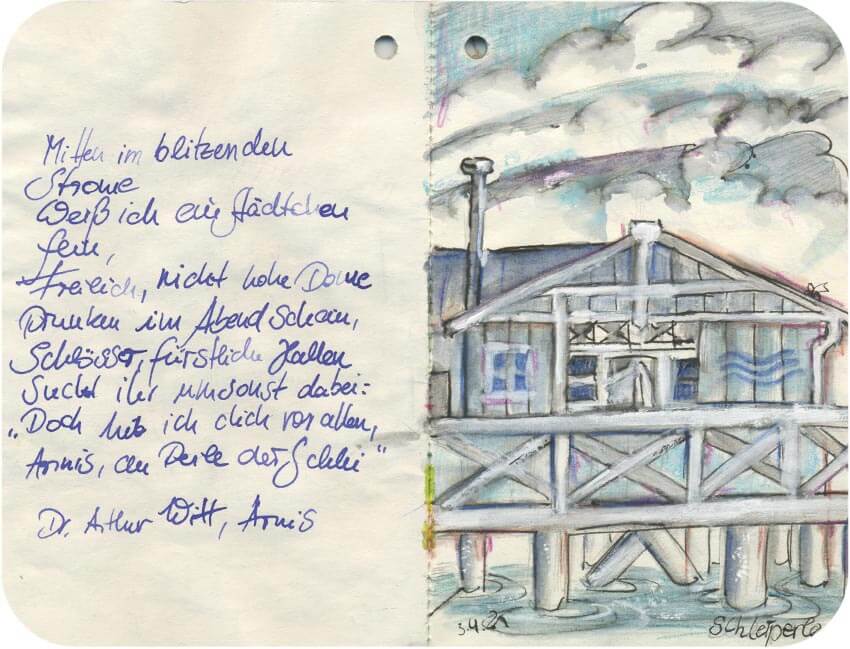 Mitten im blitzenden
Strome
Weiß ich ein Städtchen
fein,
Freilich, nicht hohe Dome
Prunken im Abendschein,
Schlösser, fürstliche Hallen
Sucht ihr umsonst dabei:
„Doch lieb ich dich vor allen,
Arnis, du Perle der Schlei“
Dr. Arthur Witt, Arnis
Schleiperle